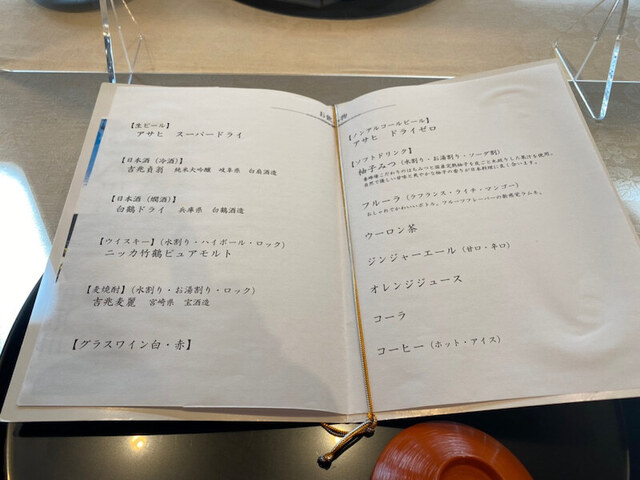 お飲
【生ビール】
アサヒ スーパードライ
【日本酒（冷酒）】
吉兆貞翁 純米大吟醸 岐阜県 白扇酒造
【日本酒（燗酒）】
白鶴ドライ 兵庫県 白鶴酒造
【ウイスキー】（水割り・ハイボール・ロック）
ニッカ竹鶴ピュアモルト
【麦焼酎】（水割り・お湯割り・ロック）
吉兆麦麗 宮崎県 宝酒造
【グラスワイン白・赤】
【ノンアルコールビール】
アサヒ ドライゼロ
【ソフトドリンク】
柚子みつ（水割り・お湯割り・ソーダ割）
フルーラ（ラフランス・ライチ・マンゴー）
おしゃれでかわいいボトル。フルーツフレーバーの新感覚ラムネ。
ウーロン茶
ジンジャーエール（甘口・辛口）
オレンジジュース
コーラ
コーヒー（ホット・アイス）